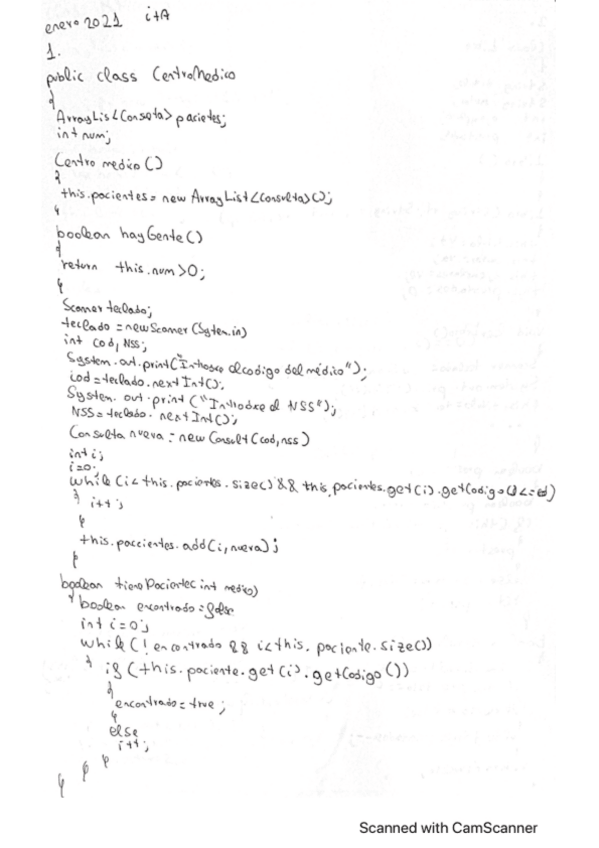 enero 2021 itA
1.
public class CentroMedico
{
ArrayLis<Conseta> pacietes;
int num;
Centro medico ()
{
this.pacientes = new ArrayList<Consulta>();
}
boolean hayGente()
{
return this.num>0;
}
Scanner teclado;
teclado = new Scanner (System.in)
int cod, NSS;
System.out.print("Introduce el codigo del médico");
cod = teclado.nextInt();
System.out.print ("Introduce el NSS");
NSS = teclado.nextInt();
Consulta nueva = new Consult (cod,nss)
int i;
i=0;
while (i< this.pacientes.size() && this.pacientes.get(i).getCodigo()<=cod)
{ i++;
}
this.paccientes.add(i,nueva);
}
boolean tienePaciente(int medico)
{ boolean encontrado = false
int i=0;
while (!encontrado && i<this.paciente.size())
{ if (this.paciente.get(i).getCodigo())
{
encontrado = true;
}
else
i++;
} } }
Scanned with CamScanner